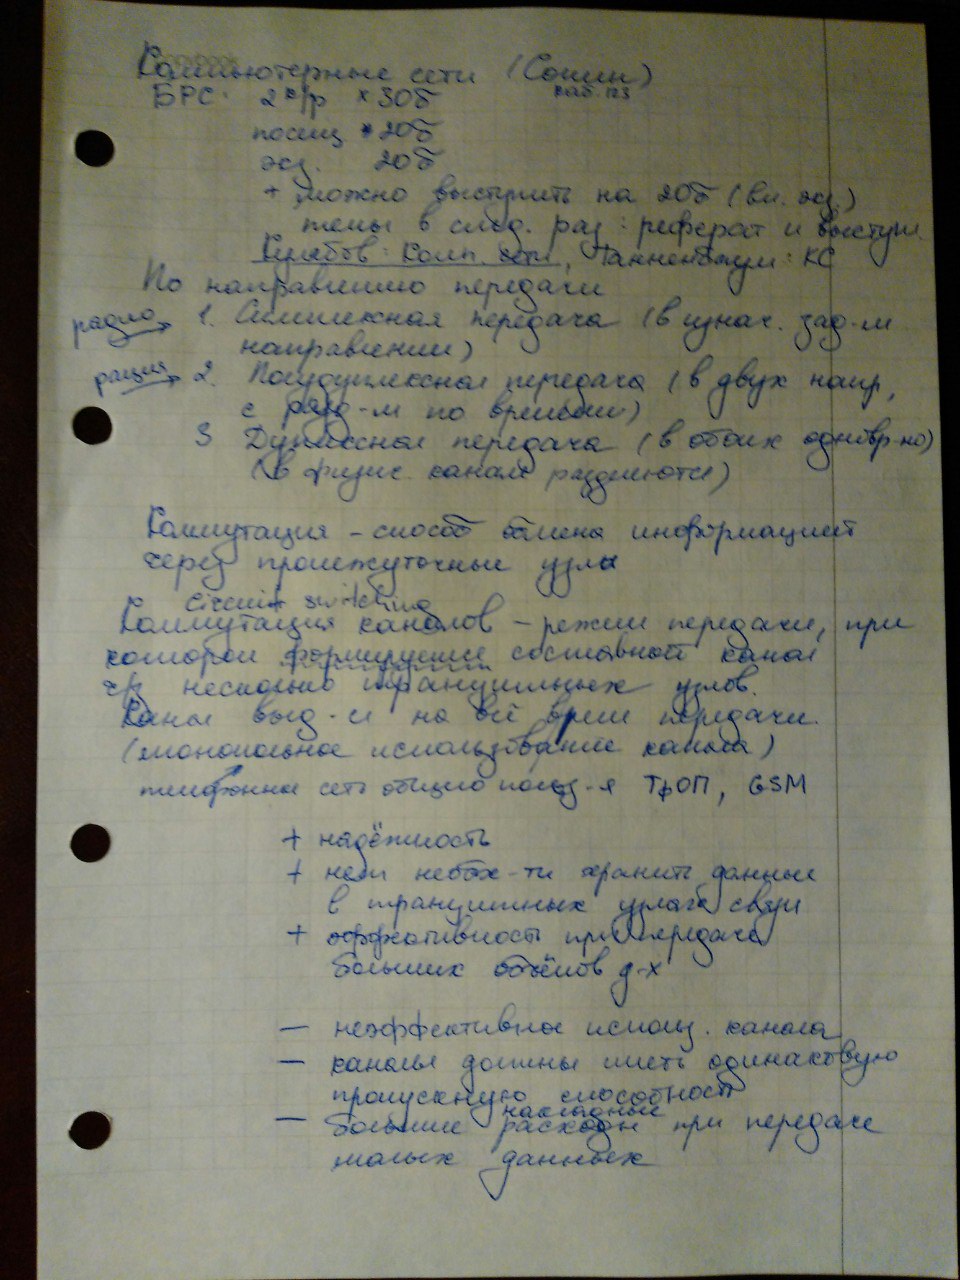 Компьютерные сети (Сошин)
каб. 123
БРС: 2 к/р × 30б
посещ 20б
экз. 20б
+ можно выступить на 20б (вл. экз.)
темы в след. раз: реферат и выступл.
Комп. сети, Танненбаум: КС
По направлению передачи
радио 1. Симплексная передача (в изнач. зад-м
направлении)
рация 2. Полудуплексная передача (в двух напр,
с разд-м по времени)
3 Дуплексная передача (в обоих одновр-но)
(в физич. канале разделяются)
Коммутация – способ обмена информацией
через промежуточные узлы
circuit switching
Коммутация каналов – режим передачи, при
котором формируется составной канал
ч/з несколько транзитных узлов.
Канал выд-ся на всё время передачи
(монопольное использование канала)
телефонная сеть общего польз-я ТфОП, GSM
+ надёжность
+ нет необх-ти хранить данные
в транзитных узлах связи
+ эффективность при передаче
больших объёмов д-х
— неэффективное использ. канала
— каналы должны иметь одинаковую
пропускную способность
накладные
— большие расходы при передаче
малых данных